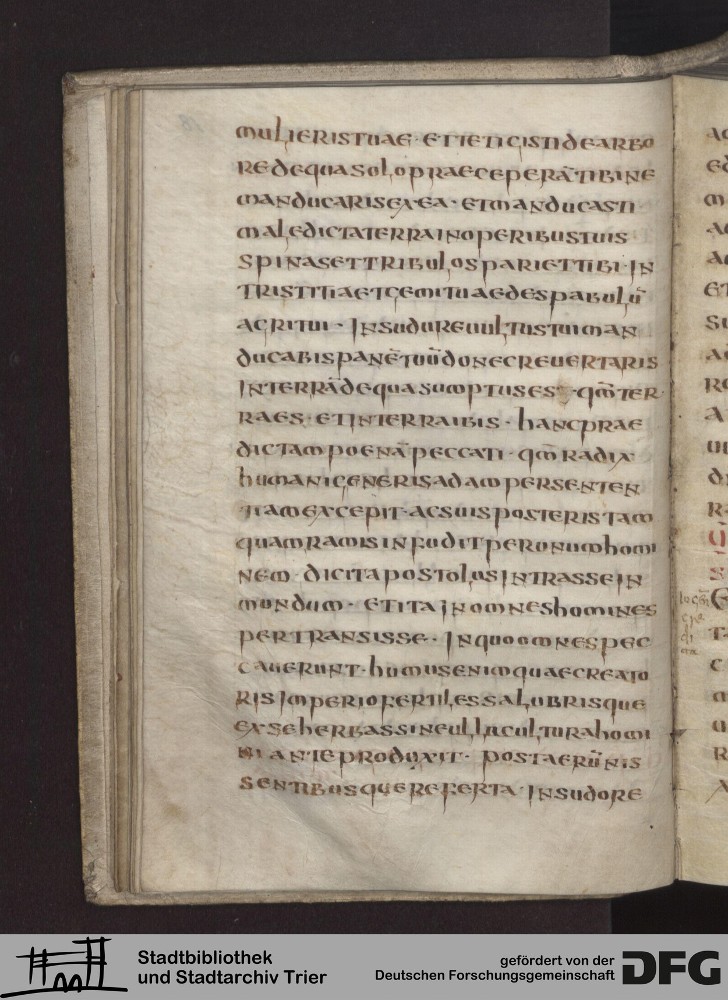 MULIERISTUAE · ETTETIGISTIDEARBO
REDEQUASOLOPRAECEPERĀTIBINE
MANDUCARISEXEA · ETMANDUCASTI ·
MALEDICTATERRAINOPERIBUSTUIS
SPINASETTRIBULOSPARIETTIBI · IN
TRISTITIAETGEMITUAEDESPABULŪ
AGRITUI · INSUDOREUULTUSTUIMAN
DUCABISPANĒTUŪDONECREUERTARIS
INTERRĀDEQUASUMPTUSES · QM̄TER
RAES · ETINTERRAIBIS · HANCPRAE
DICTAMPOENĀPECCATI · QM̄RADIX
HUMANIGENERISADAMPERSENTEN
TIAMEXCEPIT · ACSUISPOSTERISTAM
QUAMRAMISINFUDITPERUNUMHOMI
NEM · DICITAPOSTOLUSINTRASSEIN
MUNDUM · ETITAINOMNESHOMINES
PERTRANSISSE · INQUOOMNESPEC
CAUERUNT · HUMUSENIMQUAECREATO
RISIMPERIOFERTILESSALUBRISQUE
EXSEHERBASSINEULLACULTURAHOMI
NIANTEPRODUXIT · POSTAERŪNIS
SENTIBUSQUEREFERTA · INSUDORE
Stadtbibliothek
und Stadtarchiv Trier
gefördert von der
Deutschen Forschungsgemeinschaft
DFG